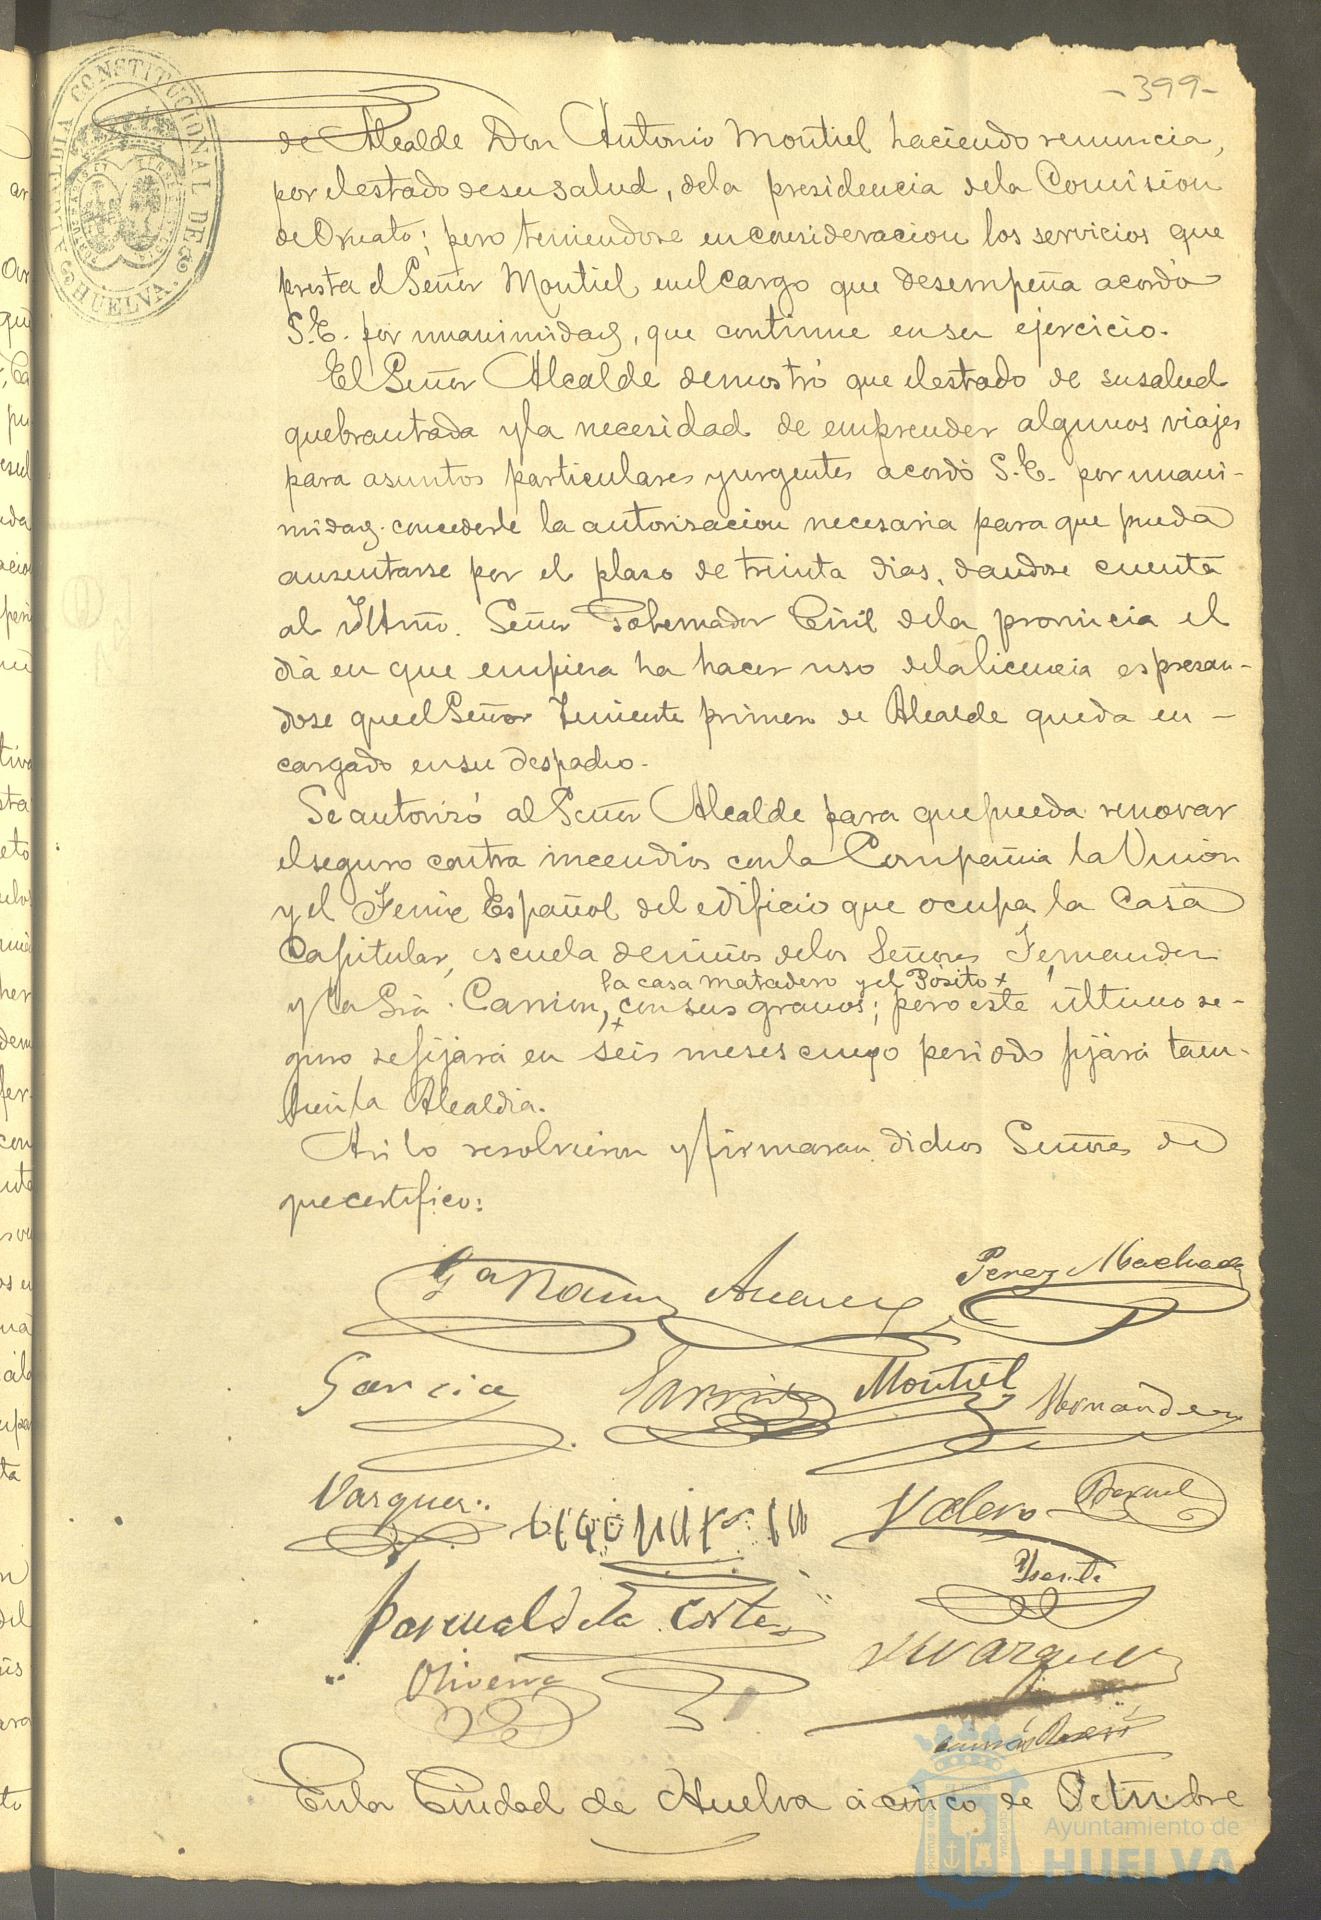 -399-
ALCALDIA CONSTITUCIONAL DE
HUELVA.
de Alcalde Don Antonio Montiel haciendo renuncia,
por el estado de su salud, de la presidencia de la Comision
de Ornato; pero teniendose en consideracion los servicios que
presta el Señor Montiel en el cargo que desempeña acordó
S.E. por unanimidad, que continue en su ejercicio.
El Señor Alcalde demostró que el estado de su salud
quebrantada y la necesidad de emprender algunos viajes
para asuntos particulares y urgentes acordó S.E. por unani-
midad concederle la autorisacion necesaria para que pueda
ausentarse por el plaso de treinta dias, dandose cuenta
al Iltmo. Señor Gobernador Civil de la provincia el
dia en que empiera ha hacer uso de la licencia espresan-
dose que el Señor Teniente primero de Alcalde queda en-
cargado en su despacho.
Se autorizó al Señor Alcalde para que pueda renovar
el seguro contra incendios con la Compañia la Union
y el Fenix Español del edificio que ocupa la Casa
Capitular, escuela de niños de los Señores Fernandez
la casa matadero y el Pósito x
y la Sra. Carrion, con sus granos; pero este último se-
guro se fijará en seis meses cuyo periodo fijará tam-
bien la Alcaldia.
Asi lo resolvieron y firmaran dichos Señores de
que certifico:
Perez Machado
Garcia
Montiel
Hernandez
Vazquez
Valero
de la Cortes
Oliveira
Vazquez
En la Ciudad de Huelva á cinco de Octubre
Ayuntamiento de
HUELVA